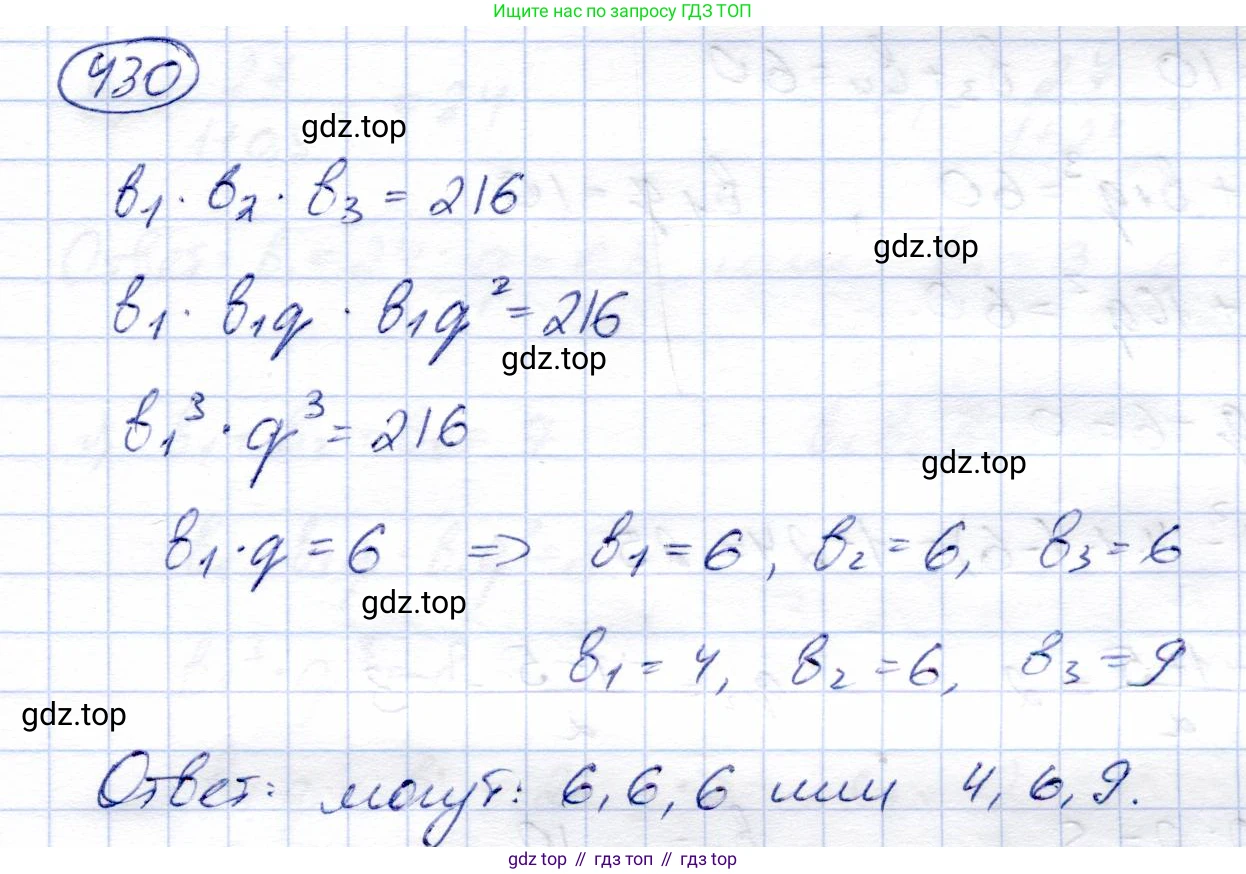 Ищите нас по запросу ГДЗ ТОП
430
gdz.top
в₁ · в₂ · в₃ = 216
gdz.top
в₁ · в₁q · в₁q² = 216
gdz.top
в₁³ · q³ = 216
gdz.top
в₁ · q = 6 => в₁ = 6, в₂ = 6, в₃ = 6
gdz.top
в₁ = 4, в₂ = 6, в₃ = 9
gdz.top
Ответ: могут: 6, 6, 6 или 4, 6, 9.
gdz top // гдз топ // гдз top